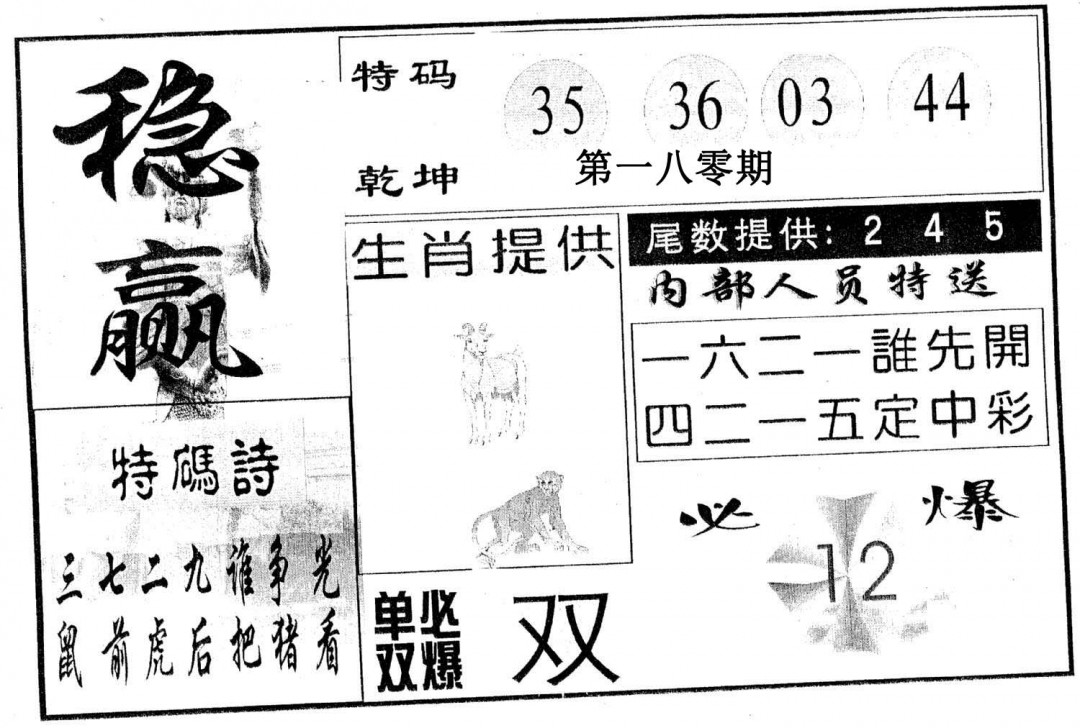 稳赢
特码
35 36 03 44
乾坤
第一八零期
生肖提供
尾数提供：2 4 5
内部人员特送
一六二一誰先開
四二一五定中彩
特碼詩
三七二九谁争光
鼠前虎后把猪看
必爆
12
单双必爆
双